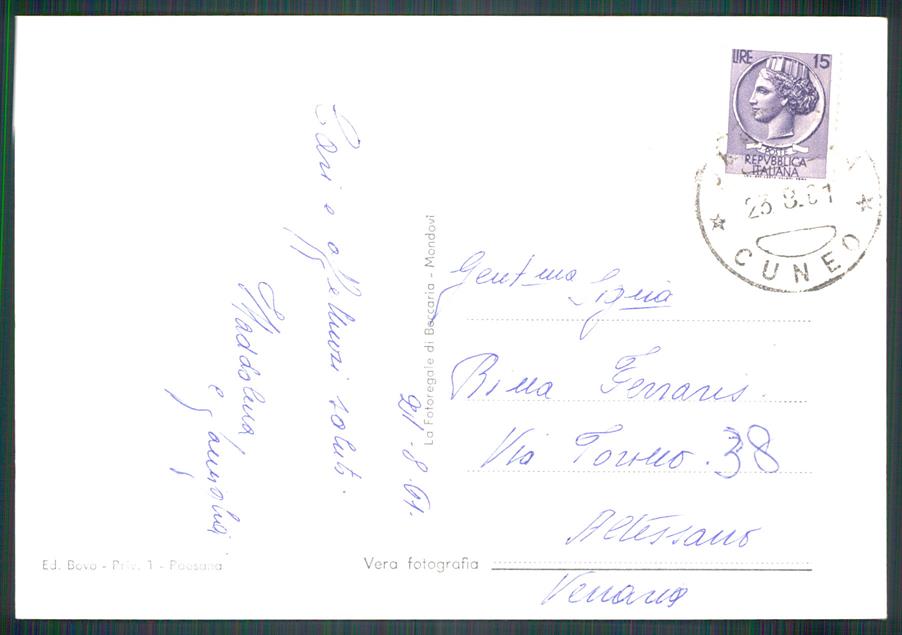 LIRE 15
POSTE
REPVBBLICA
ITALIANA
23.8.61
CUNEO
Cari e affettuosi saluti.
Maddalena
e famiglia
21-8-61.
La Fotoregale di Beccaria - Mondovì
Gent.ma
Sig.ria
Rina Ferraris.
Via Torino. 38
Altessano
Venaria
Ed. Bovo - Priv. 1 - Paesana
Vera fotografia